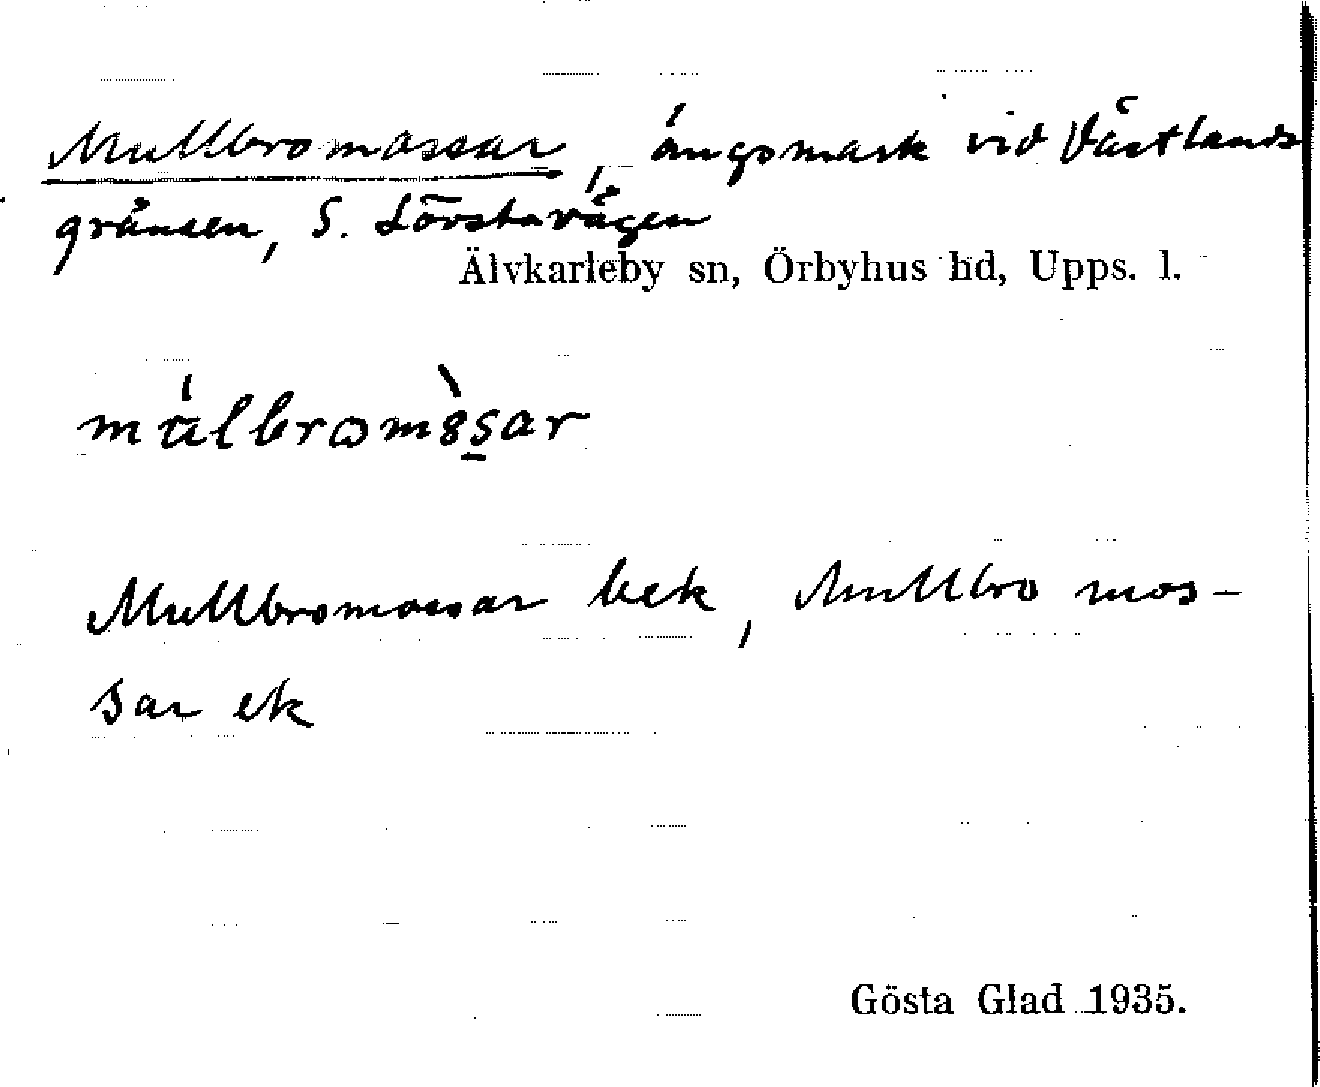 Mullbromossar, ängsmark vid Västlands
gränsen, S. Lövstavägen
Älvkarleby sn, Örbyhus hd, Upps. l.
Mullbromossar bek, Mullbro mos-
sar ek
Gösta Glad 1935.